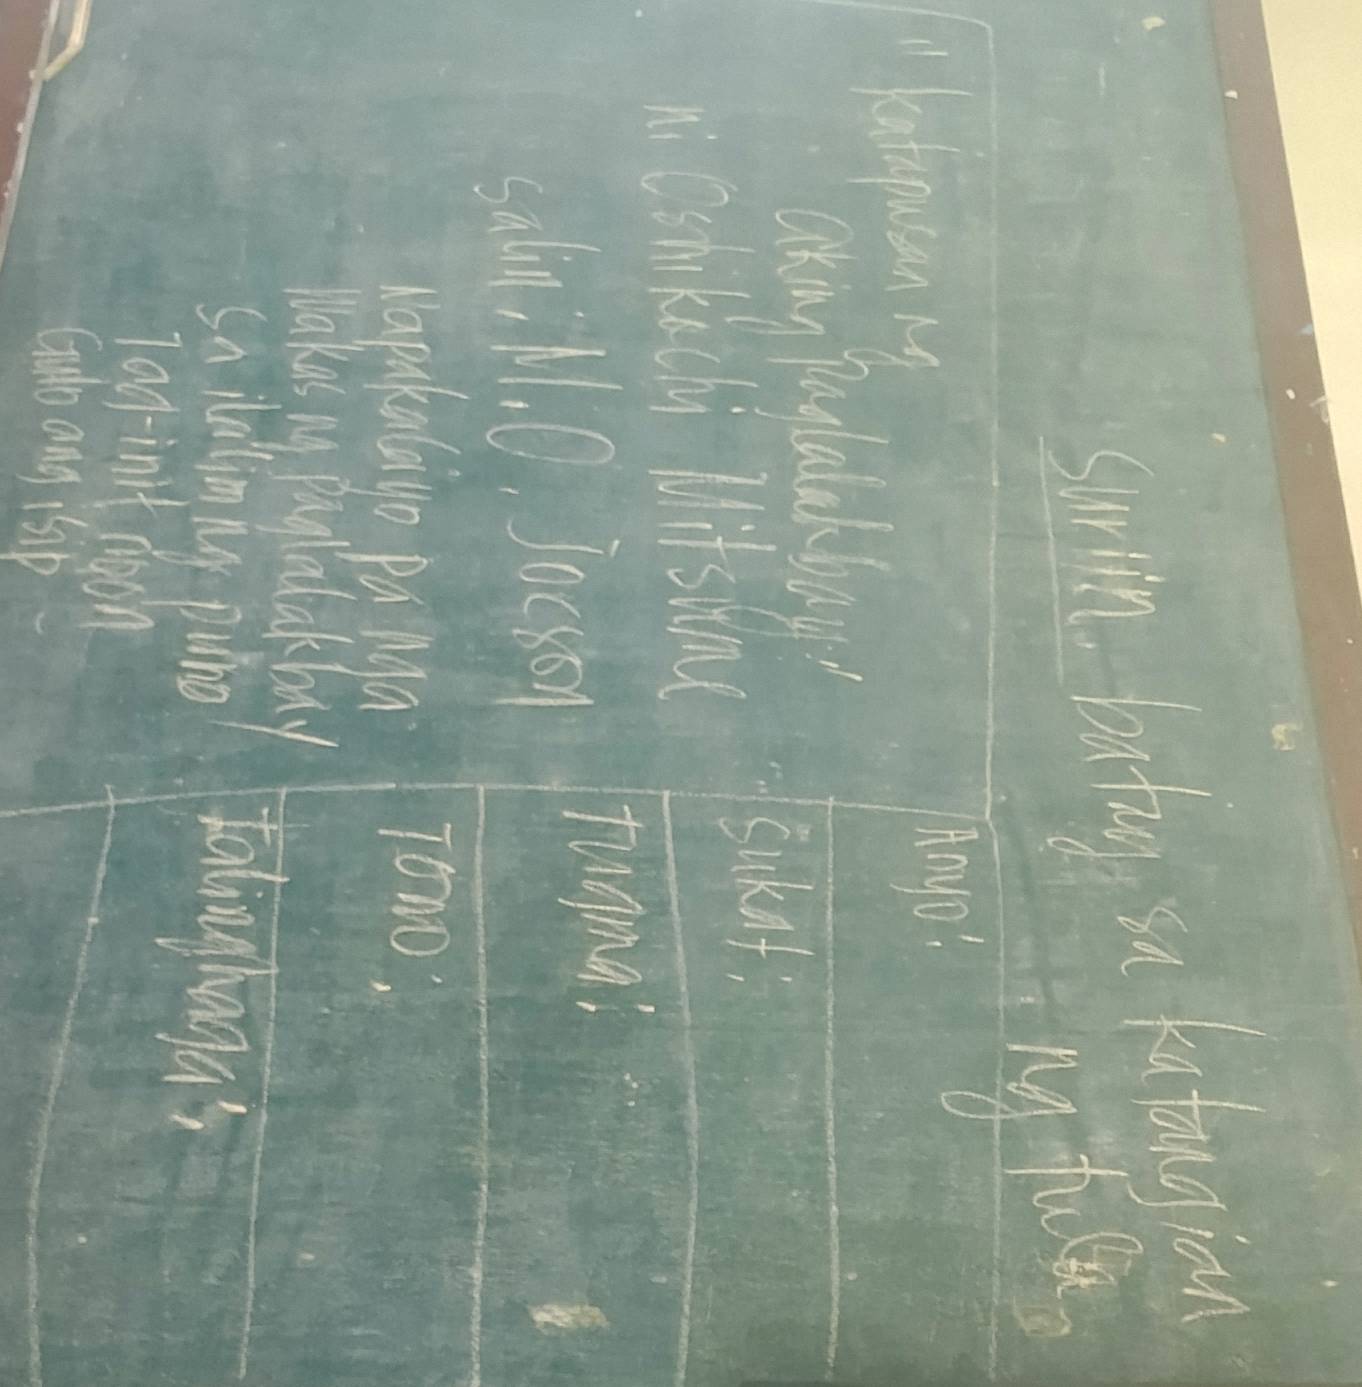 Suriin batay sa katangian
ng tula
" katapusan ng
aking paglalakbay"
ni Oshikochi Mitsune
salin: M.O. Jocson
Napakalayo pa nga
Wakas ng paglalakbay
sa ilalim ng puno
Tag-init noon
Gulo ang isip
Anyo:
Sukat:
tugma:
Tono:
talinghaga: